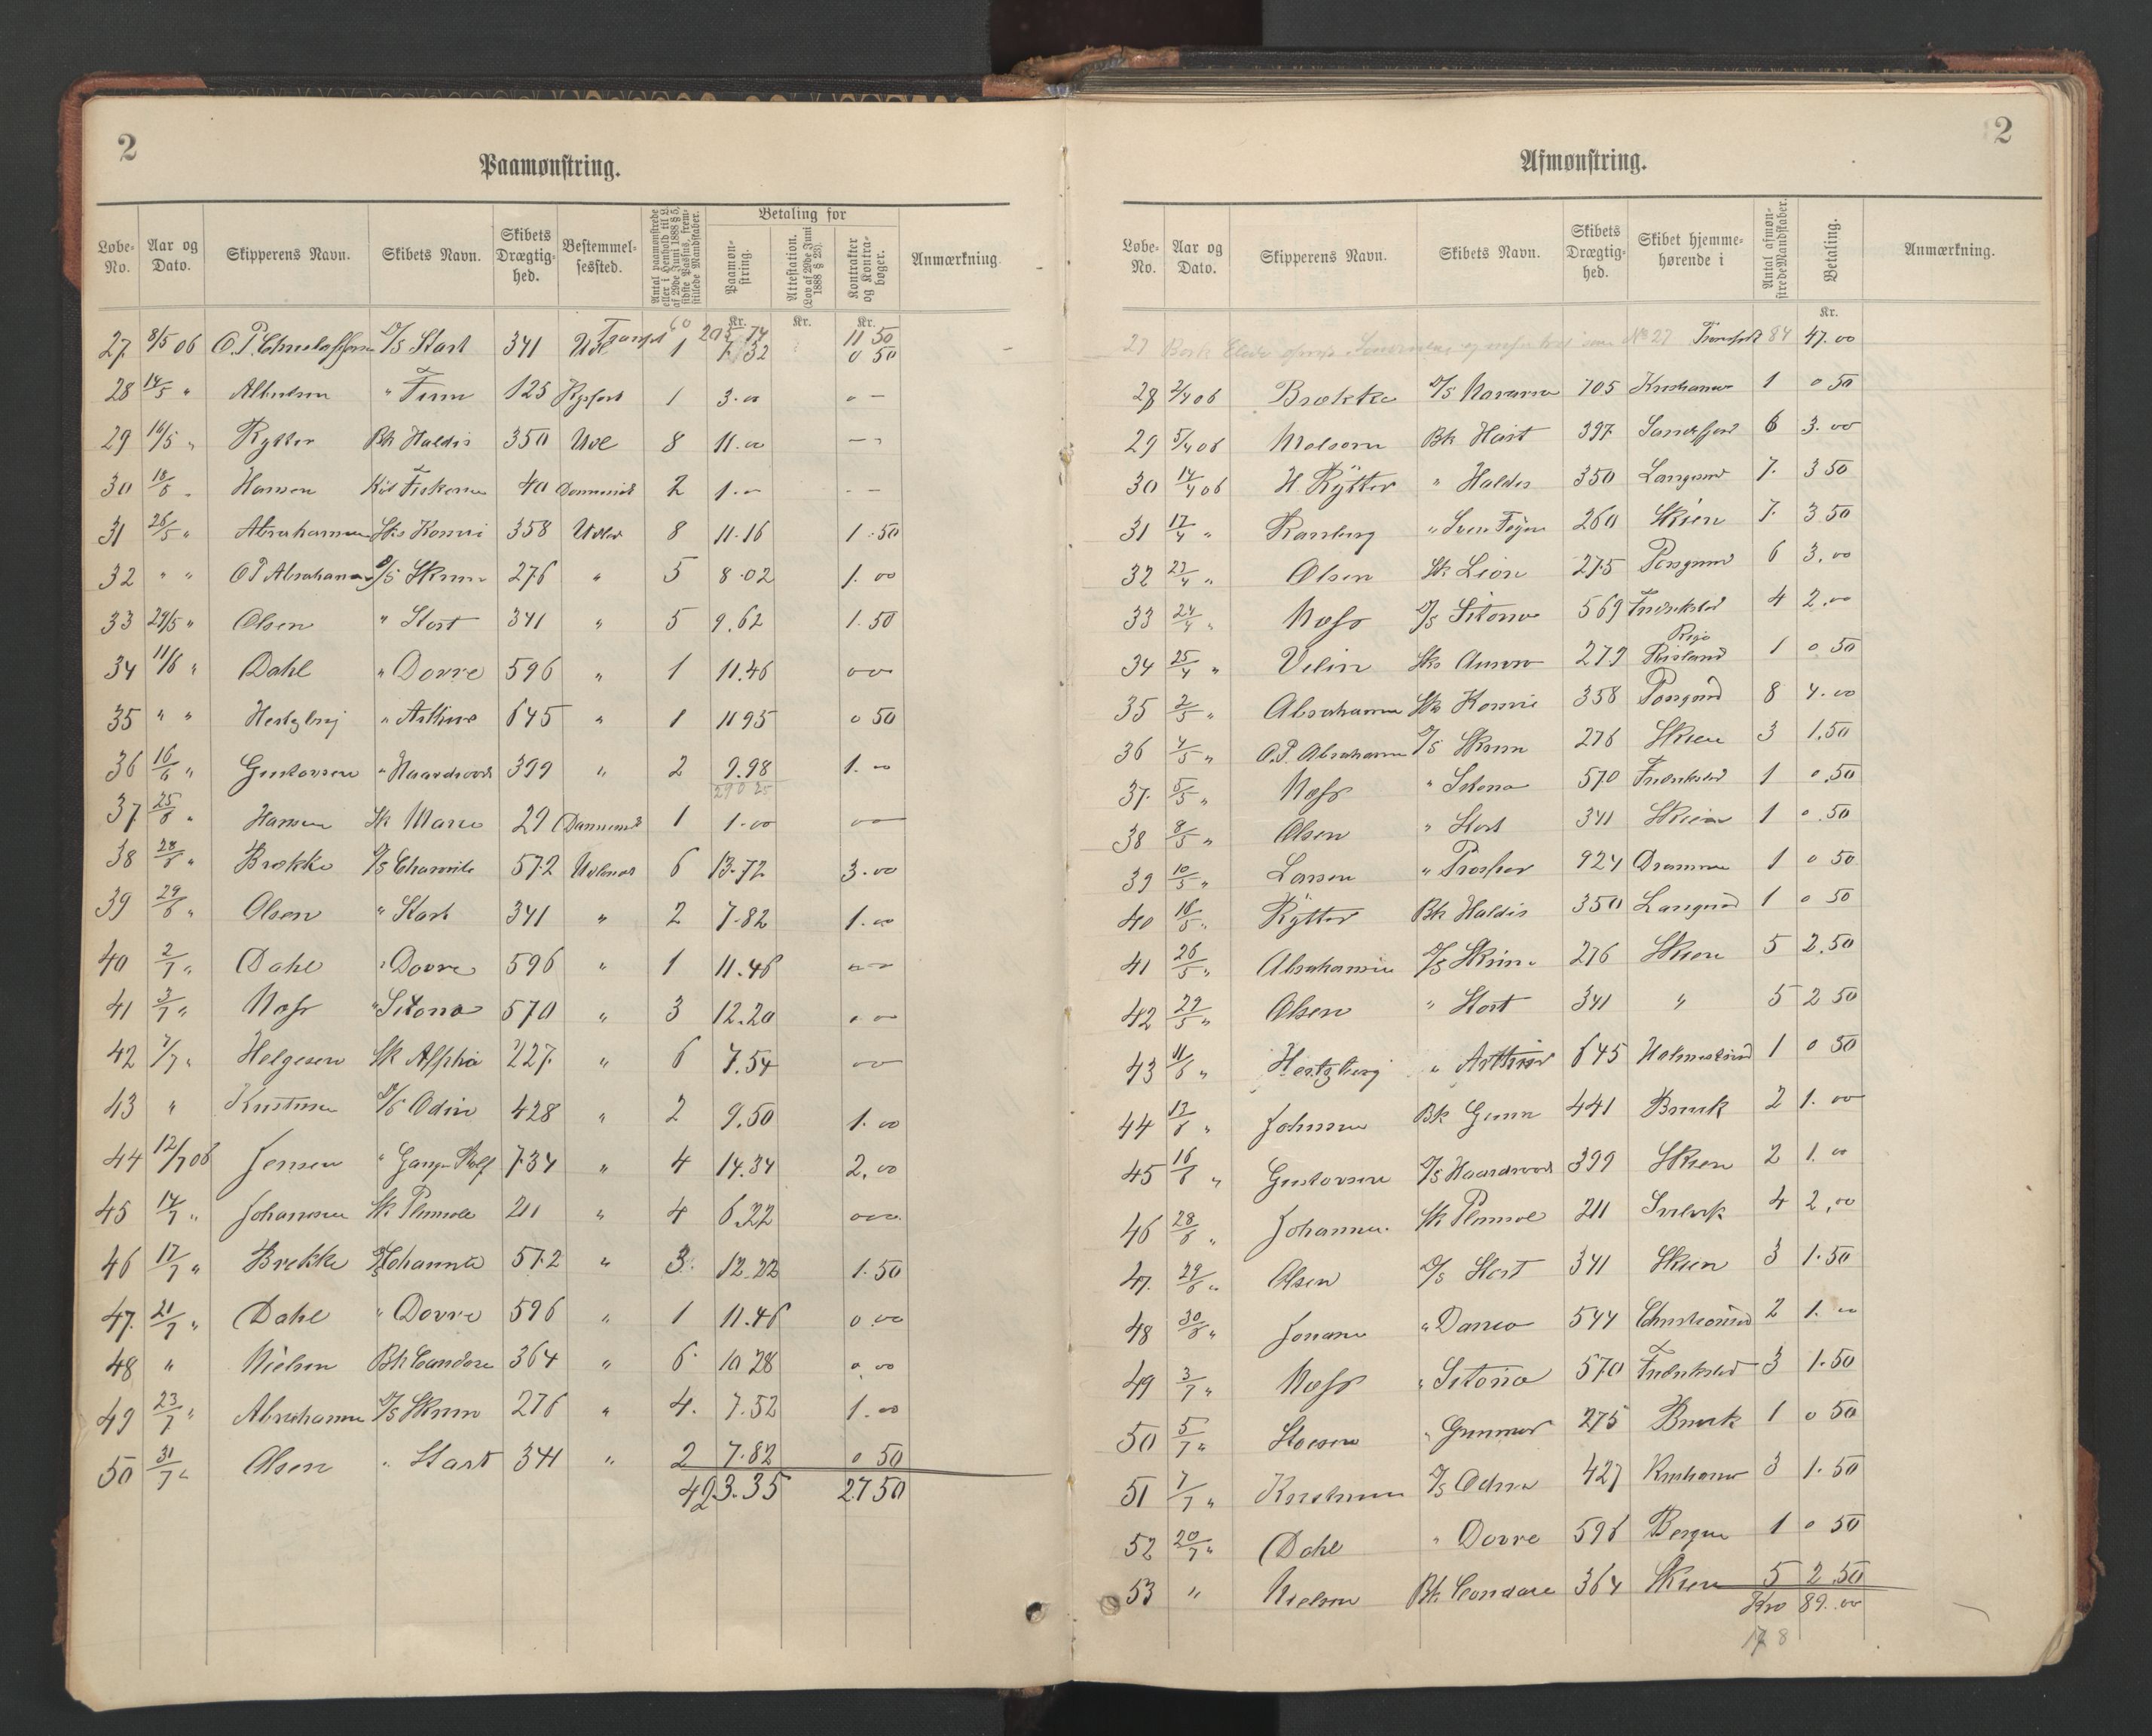 2
Paamønstring.
Løbe-No. Aar og Dato. Skipperens Navn. Skibets Navn. Skibets Drægtighed. Bestemmelsessted. Antal paamønstrede eller i Henhold til L. af 29de Juni 1888 § 5, sidste Passus, fremstillede Mandskaber. Betaling for Paamønstring. Attestation. (Lov af 29de Juni 1888 § 23). Kontrakter og Kontrabøger. Anmærkning.
Kr. Kr. Kr.
Transpt 60 205 74 11 50
27 8/5 06 O.P. D/S Start 341 Udl 1 7 32 0 50
28 14/5 " " Fram 125 1 3.00 0 —
29 16/5 " Rytter Bk Haldis 350 Udl 8 11.00 — "
30 18/5 " Hansen 40 Danmark 2 1.— . —
31 26/5 " Abrahamsen Sks Konvri 358 Udlad 8 11.16 1.50
32 " " O P Abrahamsen D/S Skrim 276 " 5 8.02 1.00
33 29/5 " Olsen " Start 341 " 5 9.62 1.50
34 11/6 " Dahl " Dovre 596 " 1 11.46 000
35 " " Hertzberg " Arthur 645 " 1 11 95 0 50
36 16/6 " Gustavsen " Haardraade 399 " 2 9.98 1.00
290 25
37 25/6 " Hansen Sk Marie 29 Danmark 1 1.00 00
38 28/6 " Brække D/S Charente 572 Udland 6 13.72 3.00
39 29/6 " Olsen " Start 341 " 2 7.82 1.00
40 2/7 " Dahl " Dovre 596 " 1 11.46
41 3/7 " Næss " Sitona 570 " 3 12.20 0 00
42 7/7 " Helgesen Sk Alphia 227 " 6 7.54 00
43 " Kristensen D/S Odin 428 " 2 9.50 1.00
44 12/7 06 Jensen " Ganger Rolf 734 " 4 14.34 2.00
45 14/7 " Johannesen Sk 211 " 4 6.22 000
46 17/7 " Brekke 572 " 3. 12.22 1.50
47. 21/7 " Dahl " Dovre 596 " 1 11.46 0.00
48 " Nielsen Bk Condore 364 " 6 10 28 0.00
49 23/7 " Abrahamsen D/S Skrim 276 " 4. 7.52 1.00
50 31/7 " Olsen " Start 341 " 2 7.82 0 50
423.35 27 50
2
Afmønstring.
Løbe-No. Aar og Dato. Skipperens Navn. Skibets Navn. Skibets Drægtighed. Skibet hjemmehørende i Antal afmønstrede Mandskaber. Betaling. Anmærkning.
Kr.
27 Bark No 27 Transpt 84 47.00
28 2/4 06 Brække D/S Navarra 705 Kristiania 1 0 50
29 5/4 06 Melsom Bk Hast 397 Sandefjord 6 3.00
30 14/4 06 H Rytter " Haldis 350 Langesund 7. 3 50
31 17/4 " Ramberg " Svend Foyn 260 Skien 7. 3 50
32 23/4 " Olsen Sk Lion 275 Porsgrund 6 3.00
33 24/4 " Næss D/S Sitona 569 Fredrikstad 4 2.00
Risø
34 25/4 " Velin Sks 279 Risland 1 0 50
35 2/5 " Abrahamsen Sk Konvri 358 Porsgrund 8 4.00
36 4/5 " O.P. Abrahamsen D/S Skrim 276 Skien 3 1.50
37. 5/5 " Næss " Sitona 570 Fredrikstad 1 0.50
38 8/5 " Olsen " Start 341 Skien 1 0.50
39 10/5 " Larsen " Prosper 924 Drammen 1 0 50
40 16/5 " Rytter Bk Haldis 350 Langesund 1 0 50
41 26/5 " Abrahamsen D/S Skrim 276 Skien 5 2.50
42 29/5 " Olsen " Start 341 " 5 2 50
43 11/6 " Hertzberg " Arthur 645 Holmestrand 1 0 50
44 13/6 " Johnsen Bk Gunn 441 Brevik 2 1.00
45 16/6 " Gustavsen D/S Haardraade 399 Skien 2 1.00
46 28/6 " Johannesen Sk 211 4 2.00
47. 29/6 " Olsen D/S Start 341 Skien 3 1.50
48 30/6 " " 544 Christiansund 2 1.00
49 3/7 " Næss " Sitona 570 Fredrikstad 3 1.50
50 5/7 " " Gunnar 275 Brevik 1 0 50
51 7/7 " Kristensen D/S Odin 427 Kristiania 3 1.50
52 20/7 " Dahl " Dovre 596 Bergen 1 0 50
53 " Nielsen Bk Condore 364 Skien 5 2.50
Kro 89.00
178